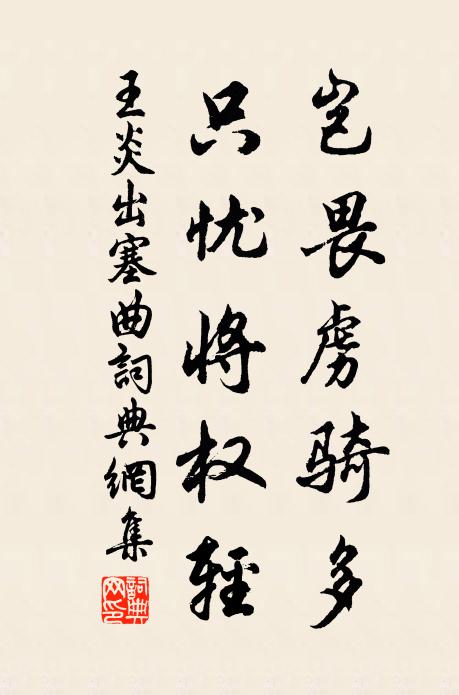 岂畏虏骑多
只忧将权轻
王炎出塞曲詞典網集
詞典网印